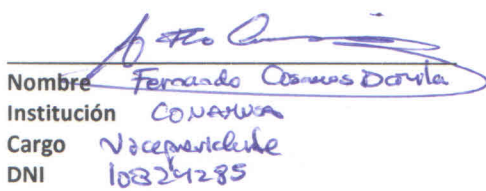 Nombre Fernando Cosmes Davila
Institución CONAMUSA
Cargo Vicepresidente
DNI 10824285